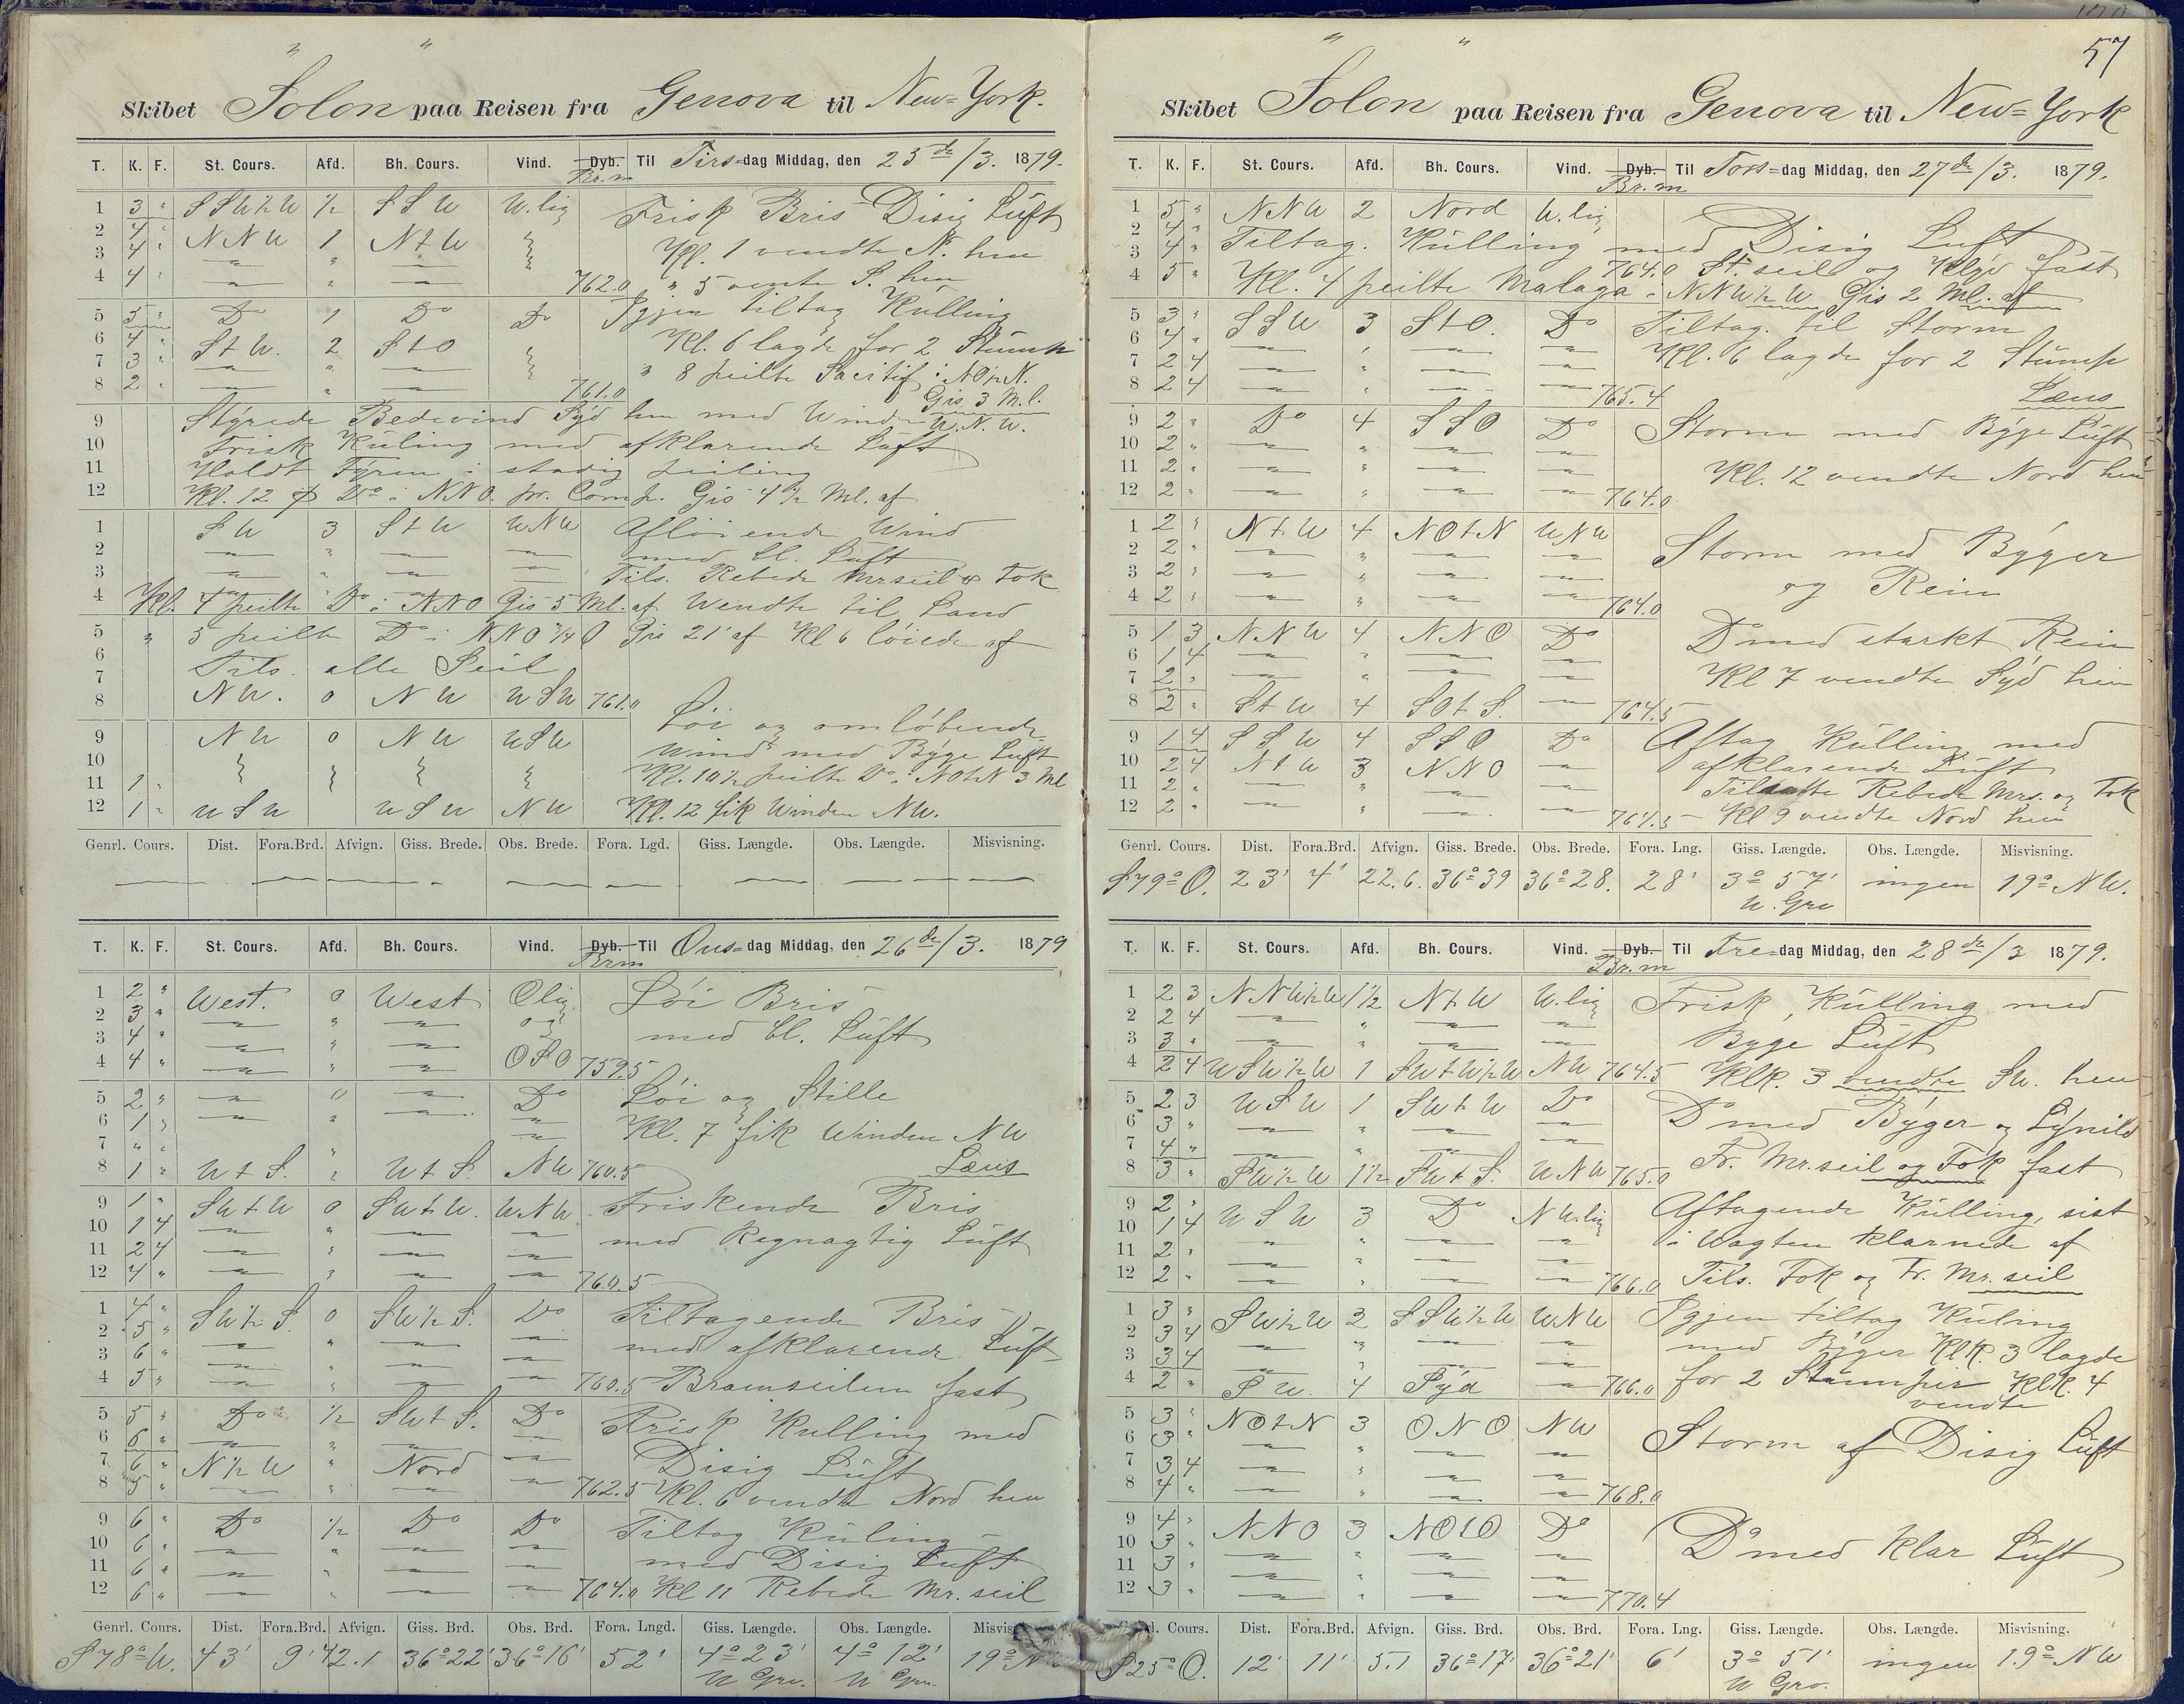 Skibet Solon paa Reisen fra Genova til New=York.
T. K. F. St. Cours. Afd. Bh. Cours. Vind. Dyb. Til Tirs=dag Middag, den 25de/3. 1879.
Br.m
1 3 " SSW½W ½ SSW W.lig Frisk Bris Disig Luft
2 4 " NNW 1 NtW Kl. 1 vendte N. hen
3 4 " " 5 vente S. hen
4 4 " 762.0
5 5 " Do 1 Do Do Igjen tiltag Kulling
6 4 " StW. 2 StO Kl. 6 lagde for 2 Stump
7 3 " " 8 peilte i NO½N.
8 2 " 761.0 Gis 3 Ml.
9 Styrede Bedevind Syd hen med Winden W.N.W.
10 Frisk Kuling med afklarende Luft
11 Holdt Fyren i stadig peiling
12 Kl. 12 Do i NNO. pr. Comp. Gis 4½ Ml. af
1 SW 3 StW WNW Afløiende Wind
2 med bl. Luft
3 Tils. Rebede Mrseil & Fok
4 Kl. 4 peilte Do i NNO Gis 5 Ml. af Wendte til Land
5 " 5 peilte Do i NNO¾O Gis 21' af Kl 6 løiede af
6
7 Tils. alle Seil
8 NW. 0 NW WSW 761.0
9 NW 0 NW WSW Løi og omløbende
10 Wind med Byge Luft
11 1 " Kl. 10½ peilte Do i NOtN 3 Ml
12 1 " WSW WSW NW Kl. 12 fik Winden NW.
Genrl. Cours. Dist. Fora.Brd. Afvign. Giss. Brede. Obs. Brede. Fora. Lgd. Giss. Længde. Obs. Længde. Misvisning.
T. K. F. St. Cours. Afd. Bh. Cours. Vind. Dyb. Til Ons=dag Middag, den 26de/3. 1879
Brm
1 2 " West. 0 West Olig Løi Bris
2 3 "
3 4 " med bl. Luft
4 4 " OSO 759.5
5 2 " 0 Do Løi og Stille
6 1 " Kl. 7 fik Winden NW
7 " "
8 1 " WtS. " WtS. NW 760.5 Læns
9 1 " SWtW 0 SWtW. WNW Friskende Bris
10 1 4
11 2 4 med Regnagtig Luft
12 4 " 760.5
1 4 " SW½S. 0 SW½S. Do Tiltagende Bris
2 5 "
3 6 " med afklarende Luft
4 5 " 760.5 Bramseilene fast
5 5 " Do ½ SWtS. Do Frisk Kulling med
6 6 " Disig Luft
7 6 " N½W " Nord
8 5 " 762.5 Kl. 6 vendte Nord hen
9 6 " Do ½ Do Do Tiltag Kuling
10 6 "
11 6 " med Disig Luft
12 6 " 764.0 Kl 11 Rebede Mr. seil
Genrl. Cours. Dist. Fora.Brd. Afvign. Giss. Brd. Obs. Brd. Fora. Lngd. Giss. Længde. Obs. Længde. Misvis
S78°W. 43' 9' 42.1 36°22' 36°16' 52' 4°23' 4°12' 19° N
W Grv. W Grv.
57
Skibet Solon paa Reisen fra Genova til New=York
T. K. F. St. Cours. Afd. Bh. Cours. Vind. Dyb. Til Tors=dag Middag, den 27de/3. 1879.
Br.m
1 5 " NNW 2 Nord W.lig
2 4 " Tiltag. Kulling med Disig Luft
3 4 " 764.0 St. seil og Klyv fast
4 5 " Kl. 4 peilte Malaga i NNW½W Gis 2 Ml. af
5 3 " SSW 3 StO. Do Tiltag. til Storm
6 4 " Kl. 6 lagde for 2 Stump
7 2 4
8 2 4 765.4 Læns
9 2 " Do 4 SSO Do Storm med Byge Luft
10 2 "
11 2 " Kl. 12 vendte Nord hen
12 2 " 764.0
1 2 " NtW 4 NOtN WNW
2 2 " Storm med Byger
3 2 " og Rein
4 2 " 764.0
5 1 3 NNW 4 NNO Do Do med starkt Rein
6 1 4
7 2 " Kl 7 vendte Syd hen
8 2 " StW 4 SOtS. 764.5
9 1 4 SSW 4 SSO Do Aftag Kulling med
10 2 4 NtW 3 NNO afklarende Luft
11 2 " Tilsatte Rebede Mrs. og Fok
12 2 " 764.5 Kl 9 vendte Nord hen
Genrl. Cours. Dist. Fora.Brd. Afvign. Giss. Brede. Obs. Brede. Fora. Lng. Giss. Længde. Obs. Længde. Misvisning.
S79°O. 23' 4' 22.6. 36°39 36°28. 28' 3°57' ingen 19° NW.
W. Grv
T. K. F. St. Cours. Afd. Bh. Cours. Vind. Dyb. Til Fre=dag Middag, den 28de/3 1879.
Br.m
1 2 3 NNW½W 1½ NtW W.lig Frisk Kulling med
2 2 4 Byge Luft
3 3 "
4 2 4 WSW½W 1 SWtW½W NW 764.5 Klk. 3 vendte SW. hen
5 2 3 WSW 1 SWtW Do Do med Byger og Lynild
6 3 "
7 4 " Fr. Mr.seil og Fok fast
8 3 " SW½W 1½ SWtS. WNW 765.0
9 2 " WSW 3 Do NW.lig Aftagende Kulling, sist
10 1 4 i Wagten klarnede af
11 2 "
12 2 " 766.0 Tils. Fok og Fr. Mr. seil
1 3 " SW½W 2 SSW½W WNW Igjen tiltag Kuling
2 3 4 med Byger Klk. 3 lagde
3 3 4
4 2 " SW. 4 Syd 766.0 for 2 Stumper Klk. 4
vendte
5 3 " NOtN 3 ONO NW
6 3 " Storm af Disig Luft
7 3 4
8 4 " 768.0
9 4 " NNO 3 NOtO Do
10 3 " Do med klar Luft
11 3 "
12 3 " 770.4
l. Cours. Dist. Fora.Brd. Afvign. Giss. Brd. Obs. Brd. Fora. Lng. Giss. Længde. Obs. Længde. Misvisning.
S25°O. 12' 11' 5.1 36°17' 36°21' 6' 3°51' ingen 19° NW
W Grv.